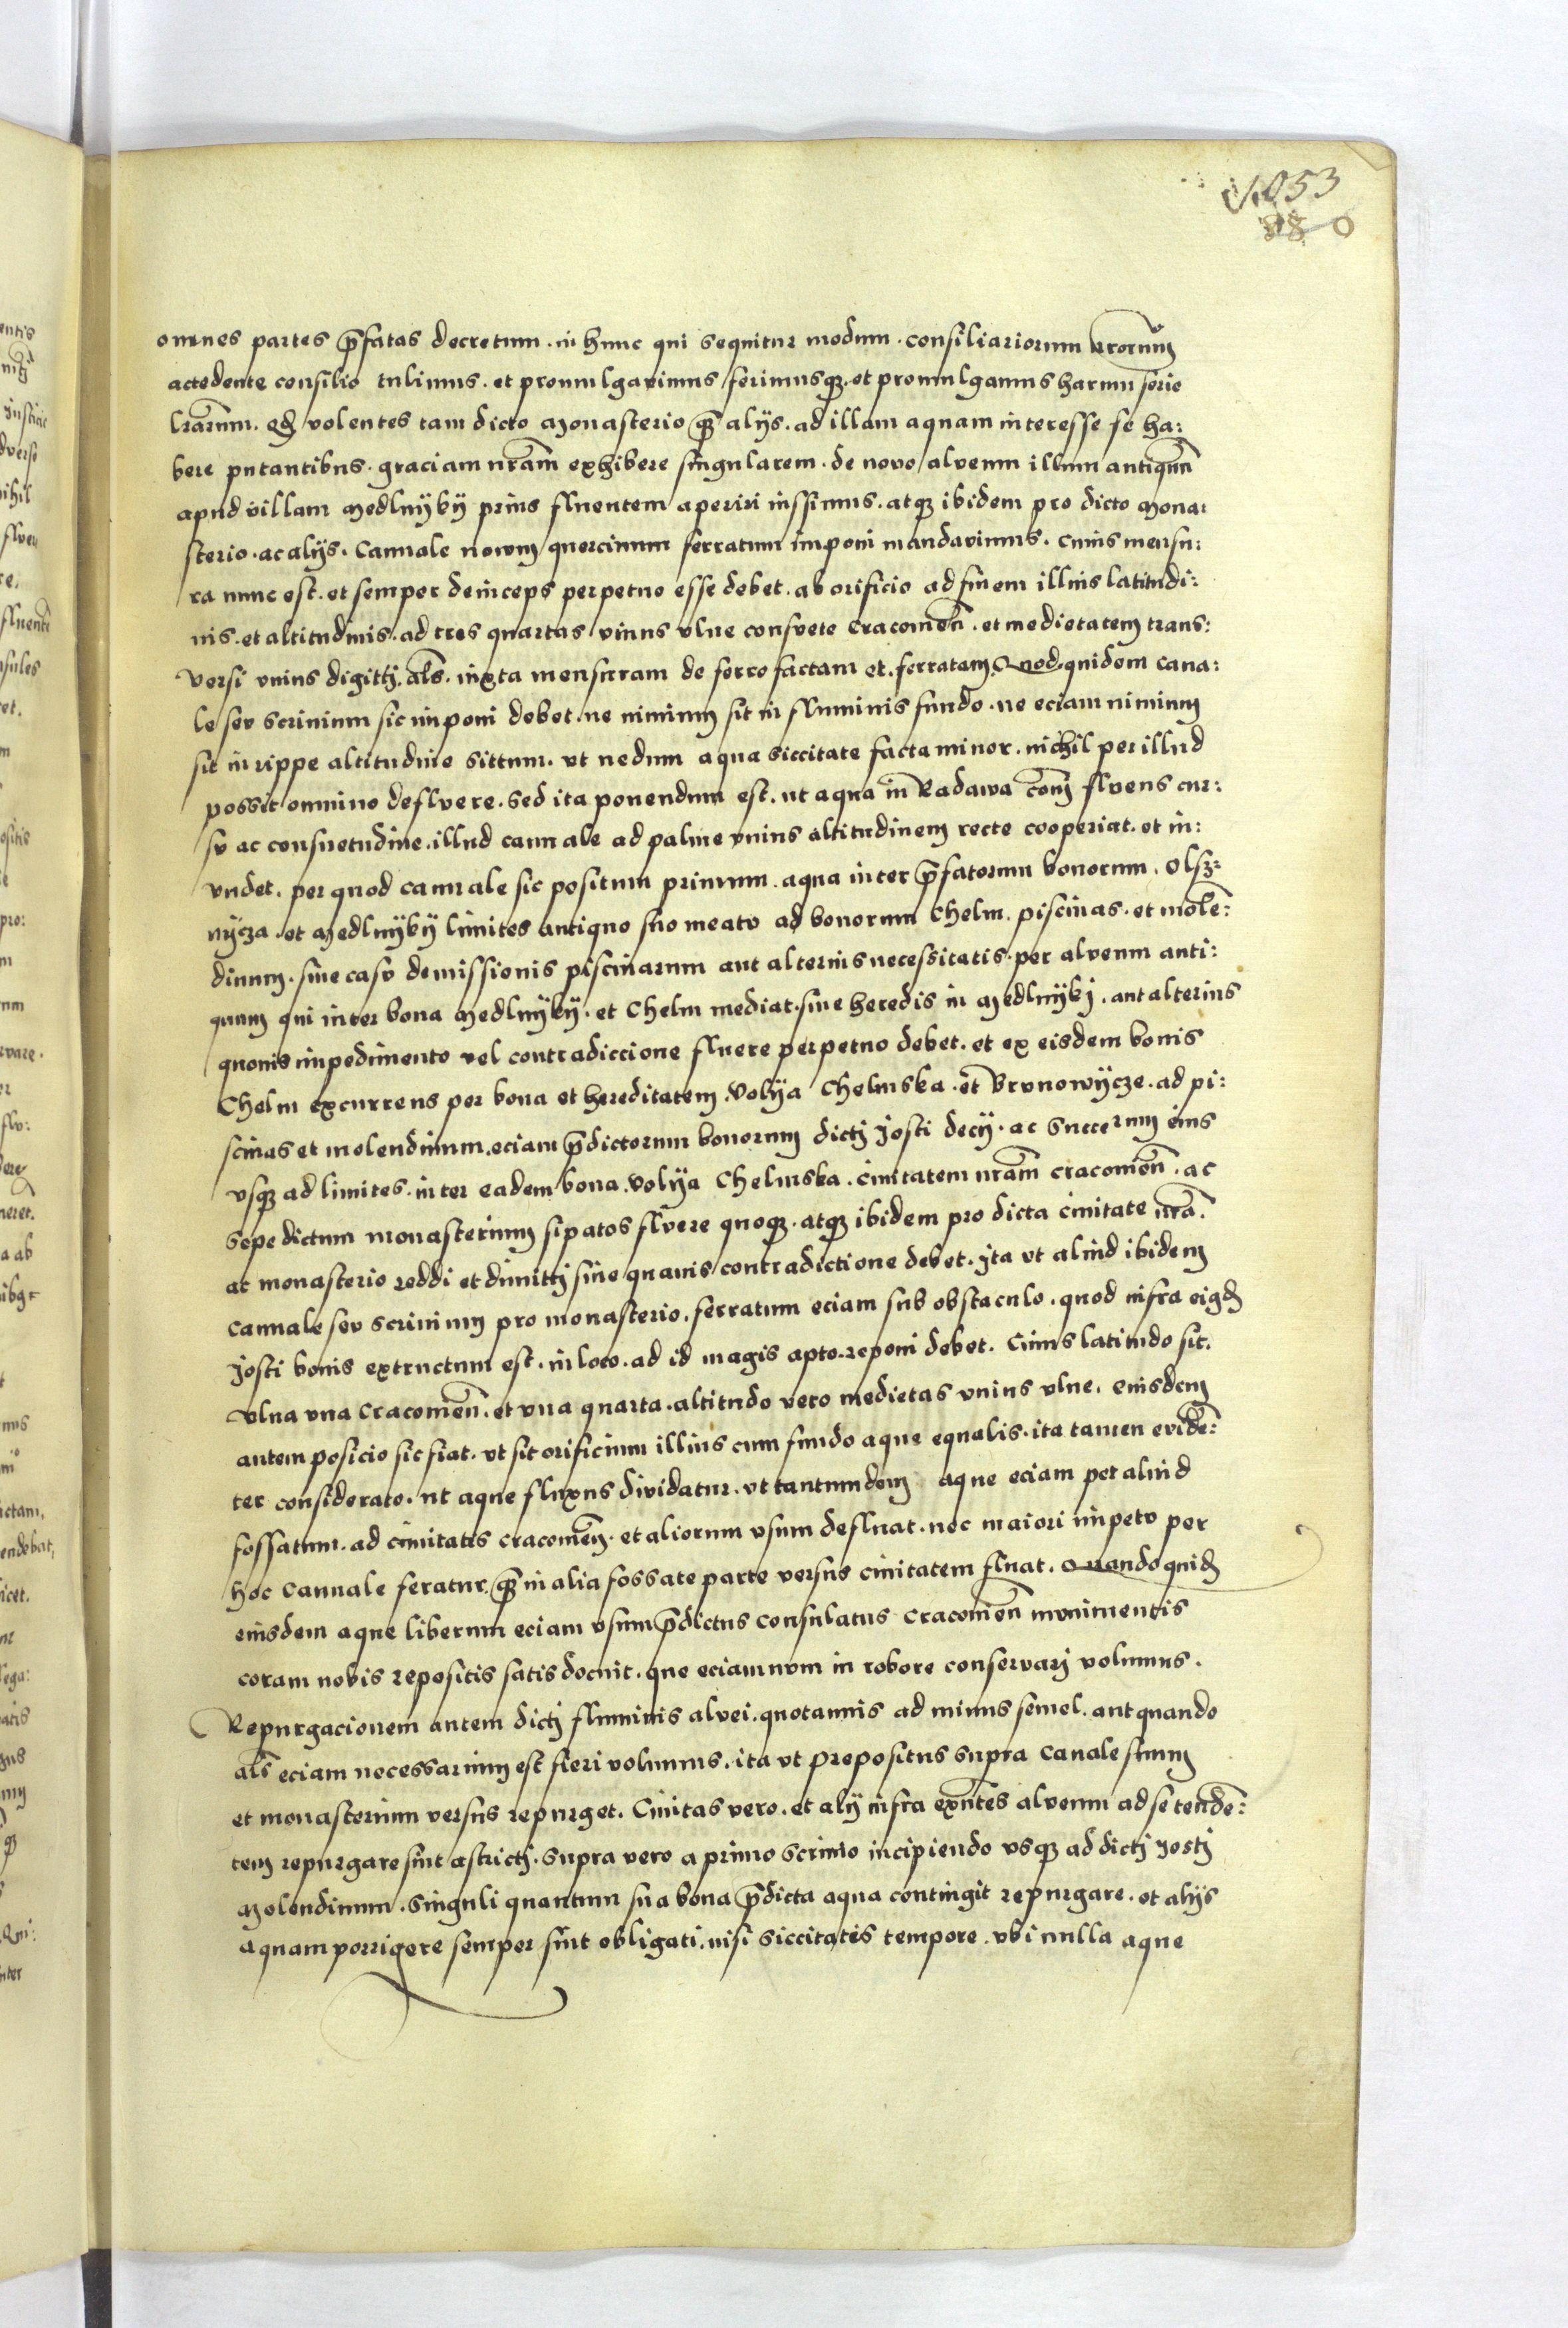 1053
280
omnes partes p̄fatas decretum. in hunc qui sequitur modum. consiliariorum nrorum̄
accedente consilio tulimus. et promulgavimus ferimusqʒ. et promulgamus harum serie
lrarum̄. qd volentes tam dicto Monasterio qʒ alijs. ad illam aquam interesse se ha:
bere putantibus. graciam nram̄ exhibere singularem. de novo alveum illum antiquū
apud villam Medlnyky prius fluentem aperiri iussimus. atqʒ ibidem pro dicto Mona:
sterio. ac alijs. Cannale nowm quercinum ferratum imponi mandavimus. cuius mensu:
ra nunc est. et semper deinceps perpetuo esse debet. ab orificio ad finem illius latitudi:
nis. et altitudinis. ad tres quartas vnius vlne consvete Cracovien̄. et medietatem trans:
versi vnius digitti. als̄. iuxta mensuram de ferro factam et. ferratam. Quod quidem cana:
le sev scrinium sic imponi debet. ne nimium sit in fluminis fundo. ne eciam nimium
sit in rippe altitudine sittum. vt nedum aqua siccitate facta minor. nichil per illud
possit omnino deflvere. sed ita ponendum est. ut aqua in Radawa com̄ flvens cur:
sv ac consvetudine. illud cannale ad palme vnius altitudinem recte cooperiat. et in:
vndet. per quod cannale sic positum primum. aqua inter p̄fatorum bonorum. Olsʒ:
nycza. et Medlnyky limites antiquo suo meatv ad bonorum Chelm. piscinas. et mole̅:
dinum. sine casv demissionis piscinarum aut alterius necessitatis. per alveum anti:
quum qui inter bona Medlnyky. et Chelm mediat. sine heredis in Medlnyki. aut alterius
quonis impedimento vel contradiccione fluere perpetuo debet. et ex eisdem bonis
Chelm excurrens per bona et hereditatem. Volya Chelmska. et Brvnowycze. ad pi:
scinas et molendinum. eciam p̄dictorum bonorum dicti Josti decy. ac succerum eius
vsqʒ ad limites. inter eadem bona. Volya Chelmska. civitatem nram̄ cracovien̄. ac
sepe dictum monasterium sipatos flvere quoqʒ. atqʒ ibidem pro dicta civitate nrā.
ac monasterio reddi et dimitti sine quavis contradictione debet. Ita vt aliud ibidem
cannale sev scrinium pro monasterio. ferratum eciam sub obstaculo. quod infra eigd̄
Josti bonis extructum est. in loco. ad id magis apto. reponi debet. Cuius latitudo sit.
vlna vna Cracovien̄. et vna quarta. altitudo vero medietas vnius vlne. eiusdem
autem posicio sic fiat. vt sit orificium illius cum fundo aque equalis. ita tamen evide̅:
ter considerato. ut aque fluxus dividatur. vt tantumdem aque eciam per aliud
fossatum. ad civitatis cracovien̄. et aliorum vsum defluat. nec maiori impetv per
hoc Cannale feratur. qʒ in alia fossate parte versus civitatem fluat. Quandoquid̄
eiusdem aque liberum eciam vsum p̄dictus consulatus Cracovien̄ mvnimentis
coram nobis repositis satis docuit. que eciamnum in robore conservari volumus.
Repurgacionem autem dicti fluminis alvei. quotannis ad minus semel. aut quando
als̄ eciam necessarium est fieri volumus. ita vt prepositus supra Canale suum
et monasterium versus repurget. Civitas vero. et aly infra exn̄tes alveum ad se tende̅:
tem repurgare sint astricti. supra vero a primo scrinio incipiendo vsqʒ ad dicti Josti
Molendinum. singuli quantum sua bona p̄dicta aqua contingit repurgare. et alijs
aquam porrigere semper sint obligati. nisi siccitatis tempore. vbi nulla aque